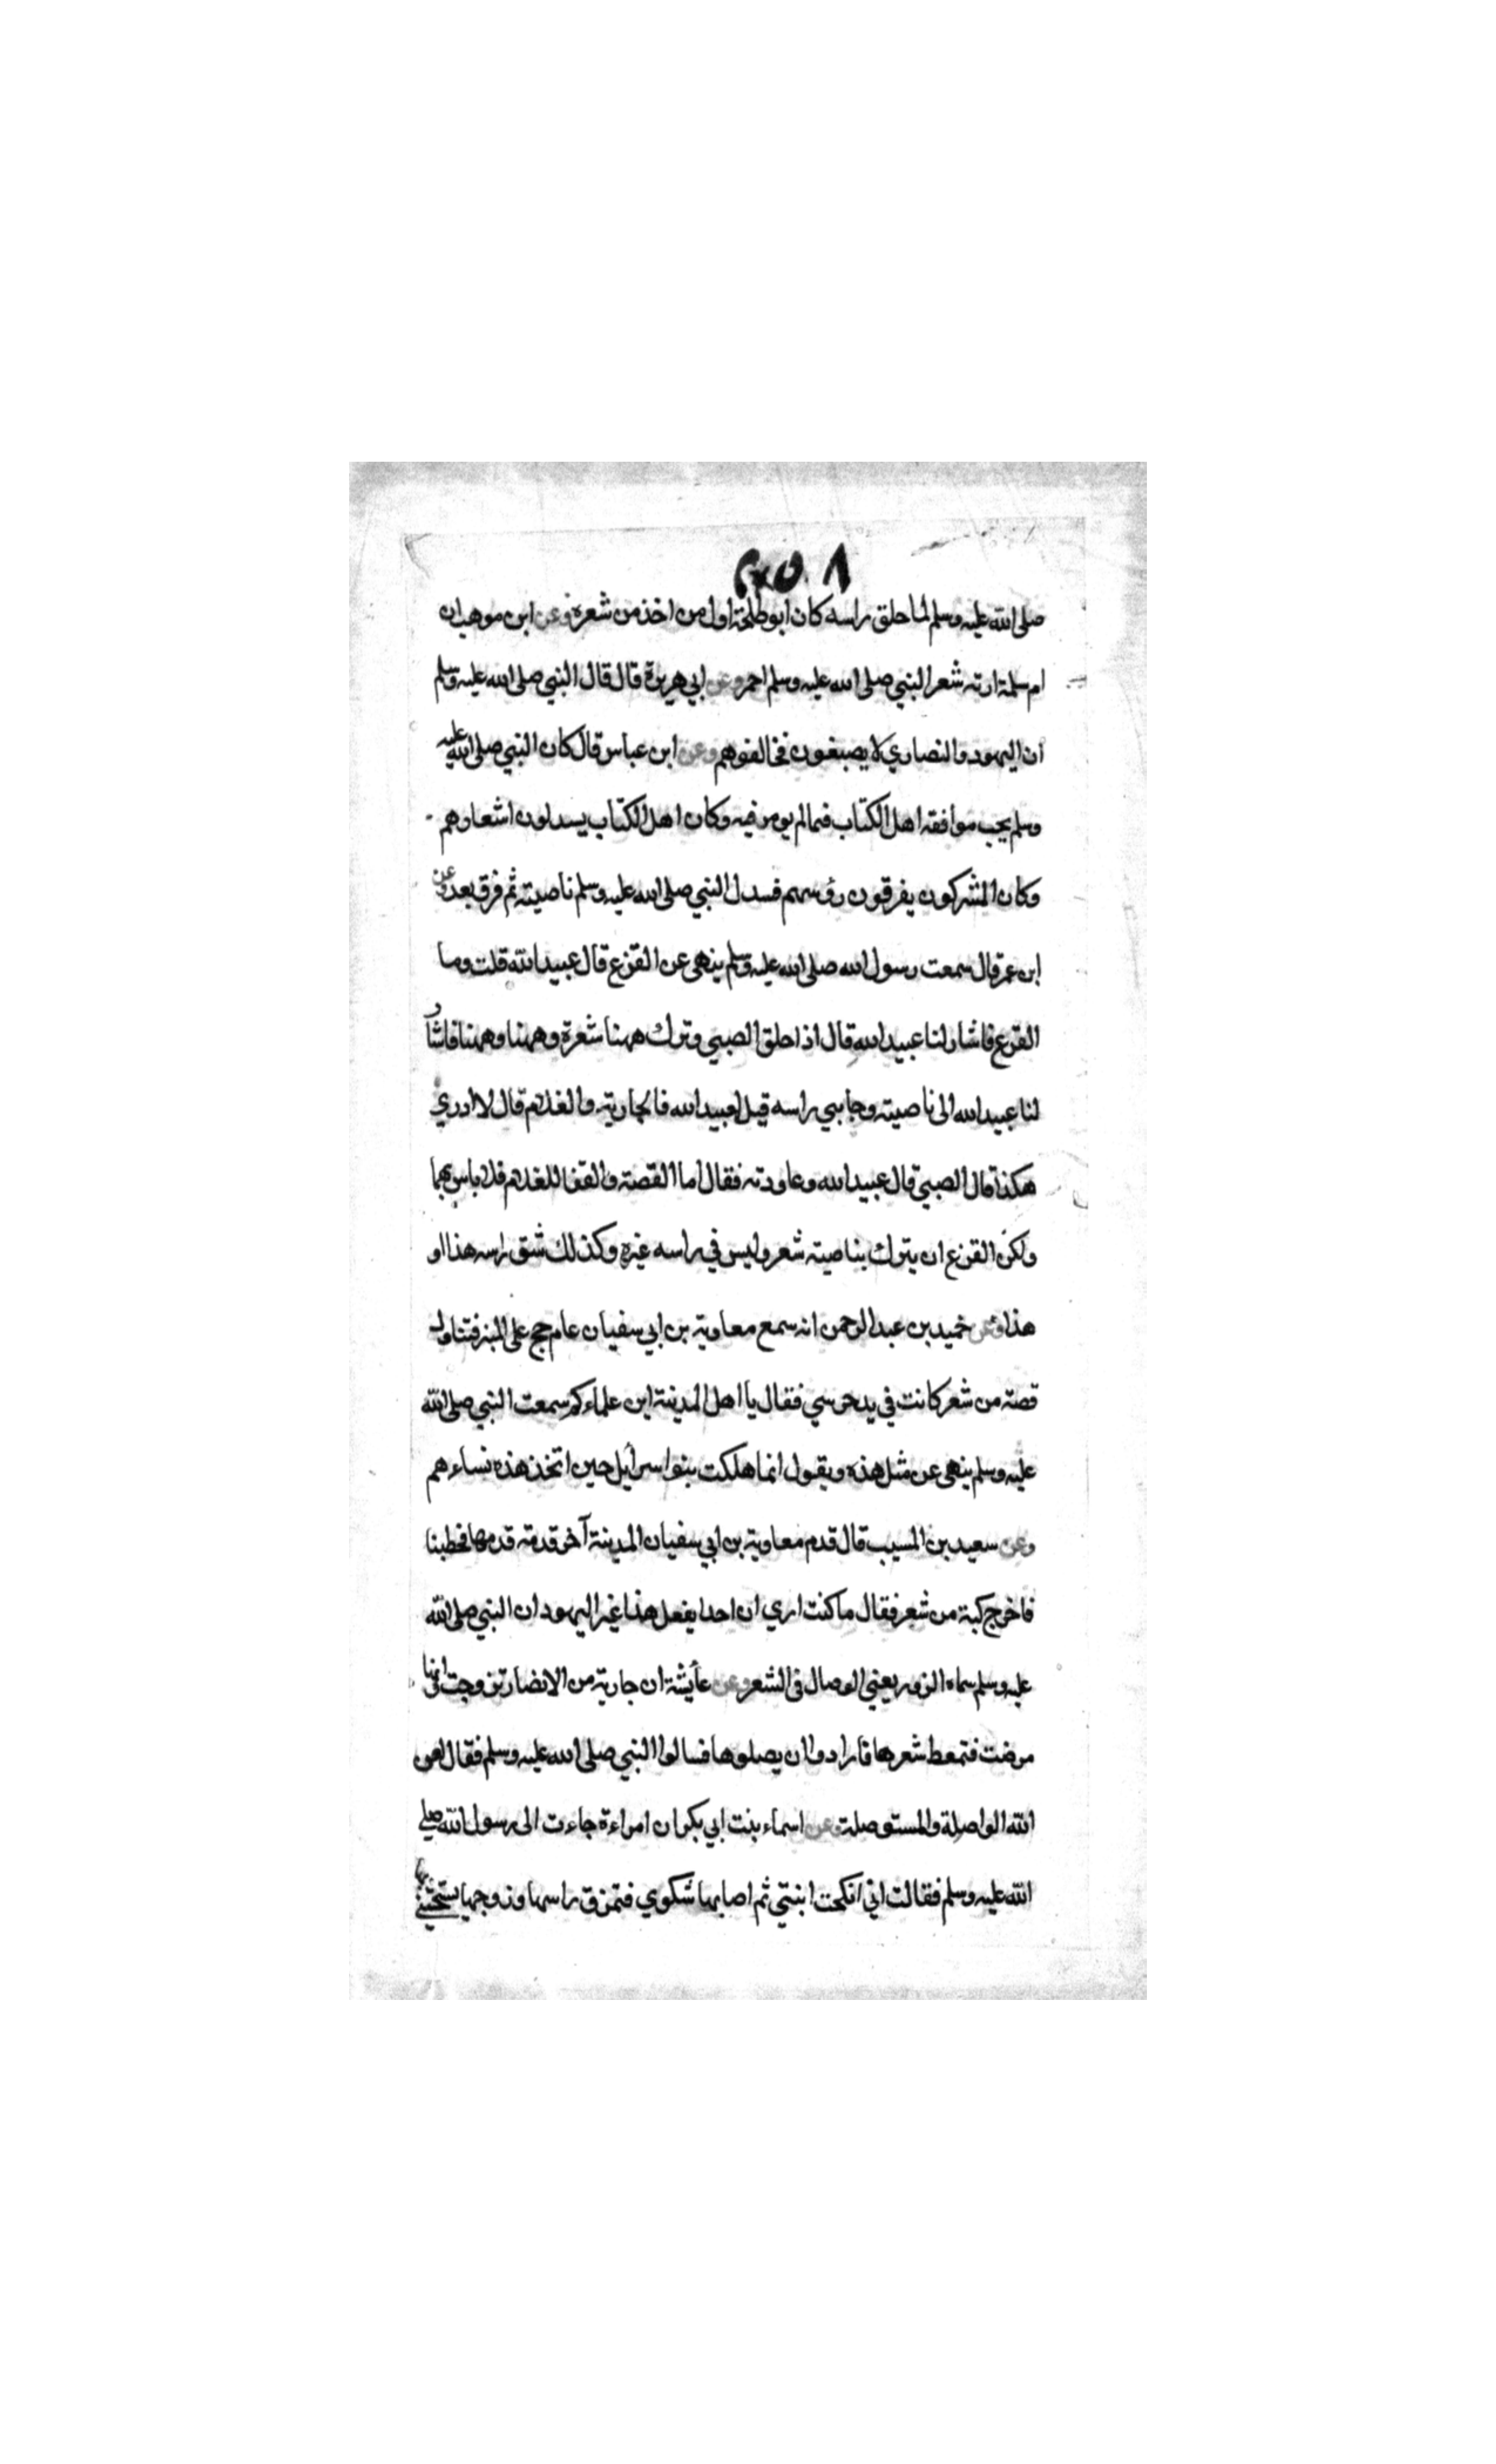 صلى الله عليه وسلم لما حلق راسه كان ابو طلحة اول من اخذ من شعره وعن ابن موهب ان
ام سلمة ارته شعر النبي صلى الله عليه وسلم احمر وعن ابي هريرة قال قال النبي صلى الله عليه وسلم
ان اليهود والنصاري لا يصبغون فخالفوهم وعن ابن عباس قال كان النبي صلى الله عليه
وسلم يحب موافقه اهل الكتاب فيما لم يومر فيه وكان اهل الكتاب يسدلون اشعارهم
وكان المشركون يفرقون رؤسهم فسدل النبي صلى الله عليه وسلم ناصيته ثم فرق بعد وعن
ابن عمر قال سمعت رسول الله صلى الله عليه وسلم ينهى عن القزع قال عبيد الله قلت وما
القزع فاشار لنا عبيد الله قال اذا حلق الصبي وترك ههنا شعرة وههنا وههنا فاشار
لنا عبيد الله الى ناصيته وجانبي راسه قيل لعبيد الله فالجارية والغلام قال لا ادري
هكذا قال الصبي قال عبيد الله وعاودته فقال اما القصة والقفا للغلام فلا باس بهما
ولكن القزع ان يترك بناصيته شعر وليس في راسه غيره وكذلك شق راسه هذا او
هذا وعن حميد بن عبد الرحمن انه سمع معاوية بن ابي سفيان عام حج على المنبر فتناول
قصة من شعر كانت في يد حرسي فقال يا اهل المدينة اين علماءكم سمعت النبي صلى الله
عليه وسلم ينهى عن مثل هذه ويقول انما هلكت بنوا سرائيل حين اتخذ هذه نساءهم
وعن سعيد بن المسيب قال قدم معاوية بن ابي سفيان المدينة آخر قدمة قدمها فخطبنا
فاخرج كبة من شعر فقال ما كنت اري ان احدا يفعل هذا غير اليهود ان النبي صلى الله
عليه وسلم سماه الزور يعني الوصال في الشعر وعن عائشة ان جارية من الانصار تزوجت انها
مرضت فتمعط شعرها فارادوا ان يصلوها فسالوا النبي صلى الله عليه وسلم فقال لعن
الله الواصلة والمستوصلة وعن اسماء بنت ابي بكر ان امراءة جاءت الى رسول الله صلى
الله عليه وسلم فقالت اني انكحت ابنتي ثم اصابها شكوي فتمزق راسها وزوجها يستحثني بها